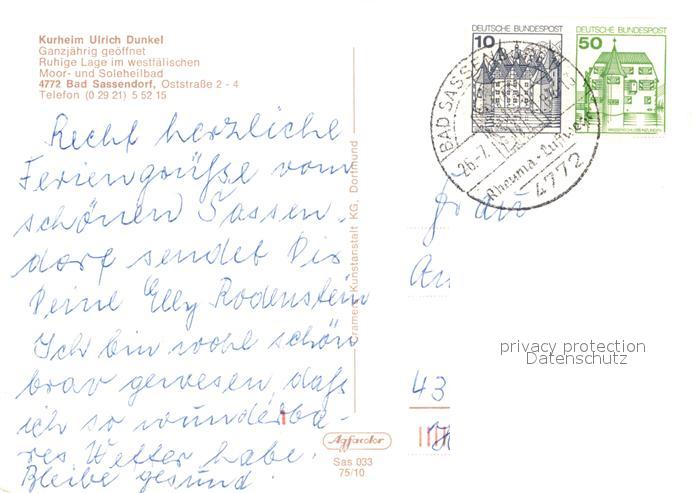 Kurheim Ulrich Dunkel
Ganzjährig geöffnet
Ruhige Lage im westfälischen
Moor- und Soleheilbad
4772 Bad Sassendorf, Oststraße 2 - 4
Telefon (0 29 21) 5 52 15
Recht herzliche
Feriengrüße vom
schönen Sassen-
dorf sendet Dir
Deine Elly Rodenstein
Ich bin wohl schön
brav gewesen, daß
ich so wunderba-
res Wetter habe.
Bleibe gesund.
Cramers Kunstanstalt KG, Dortmund
Agfacolor
Sas 033
75/10
DEUTSCHE BUNDESPOST
10
DEUTSCHE BUNDESPOST
50
BAD SASSE
26.-7.
Rheuma-
4772
Frau
An
43
privacy protection
Datenschutz